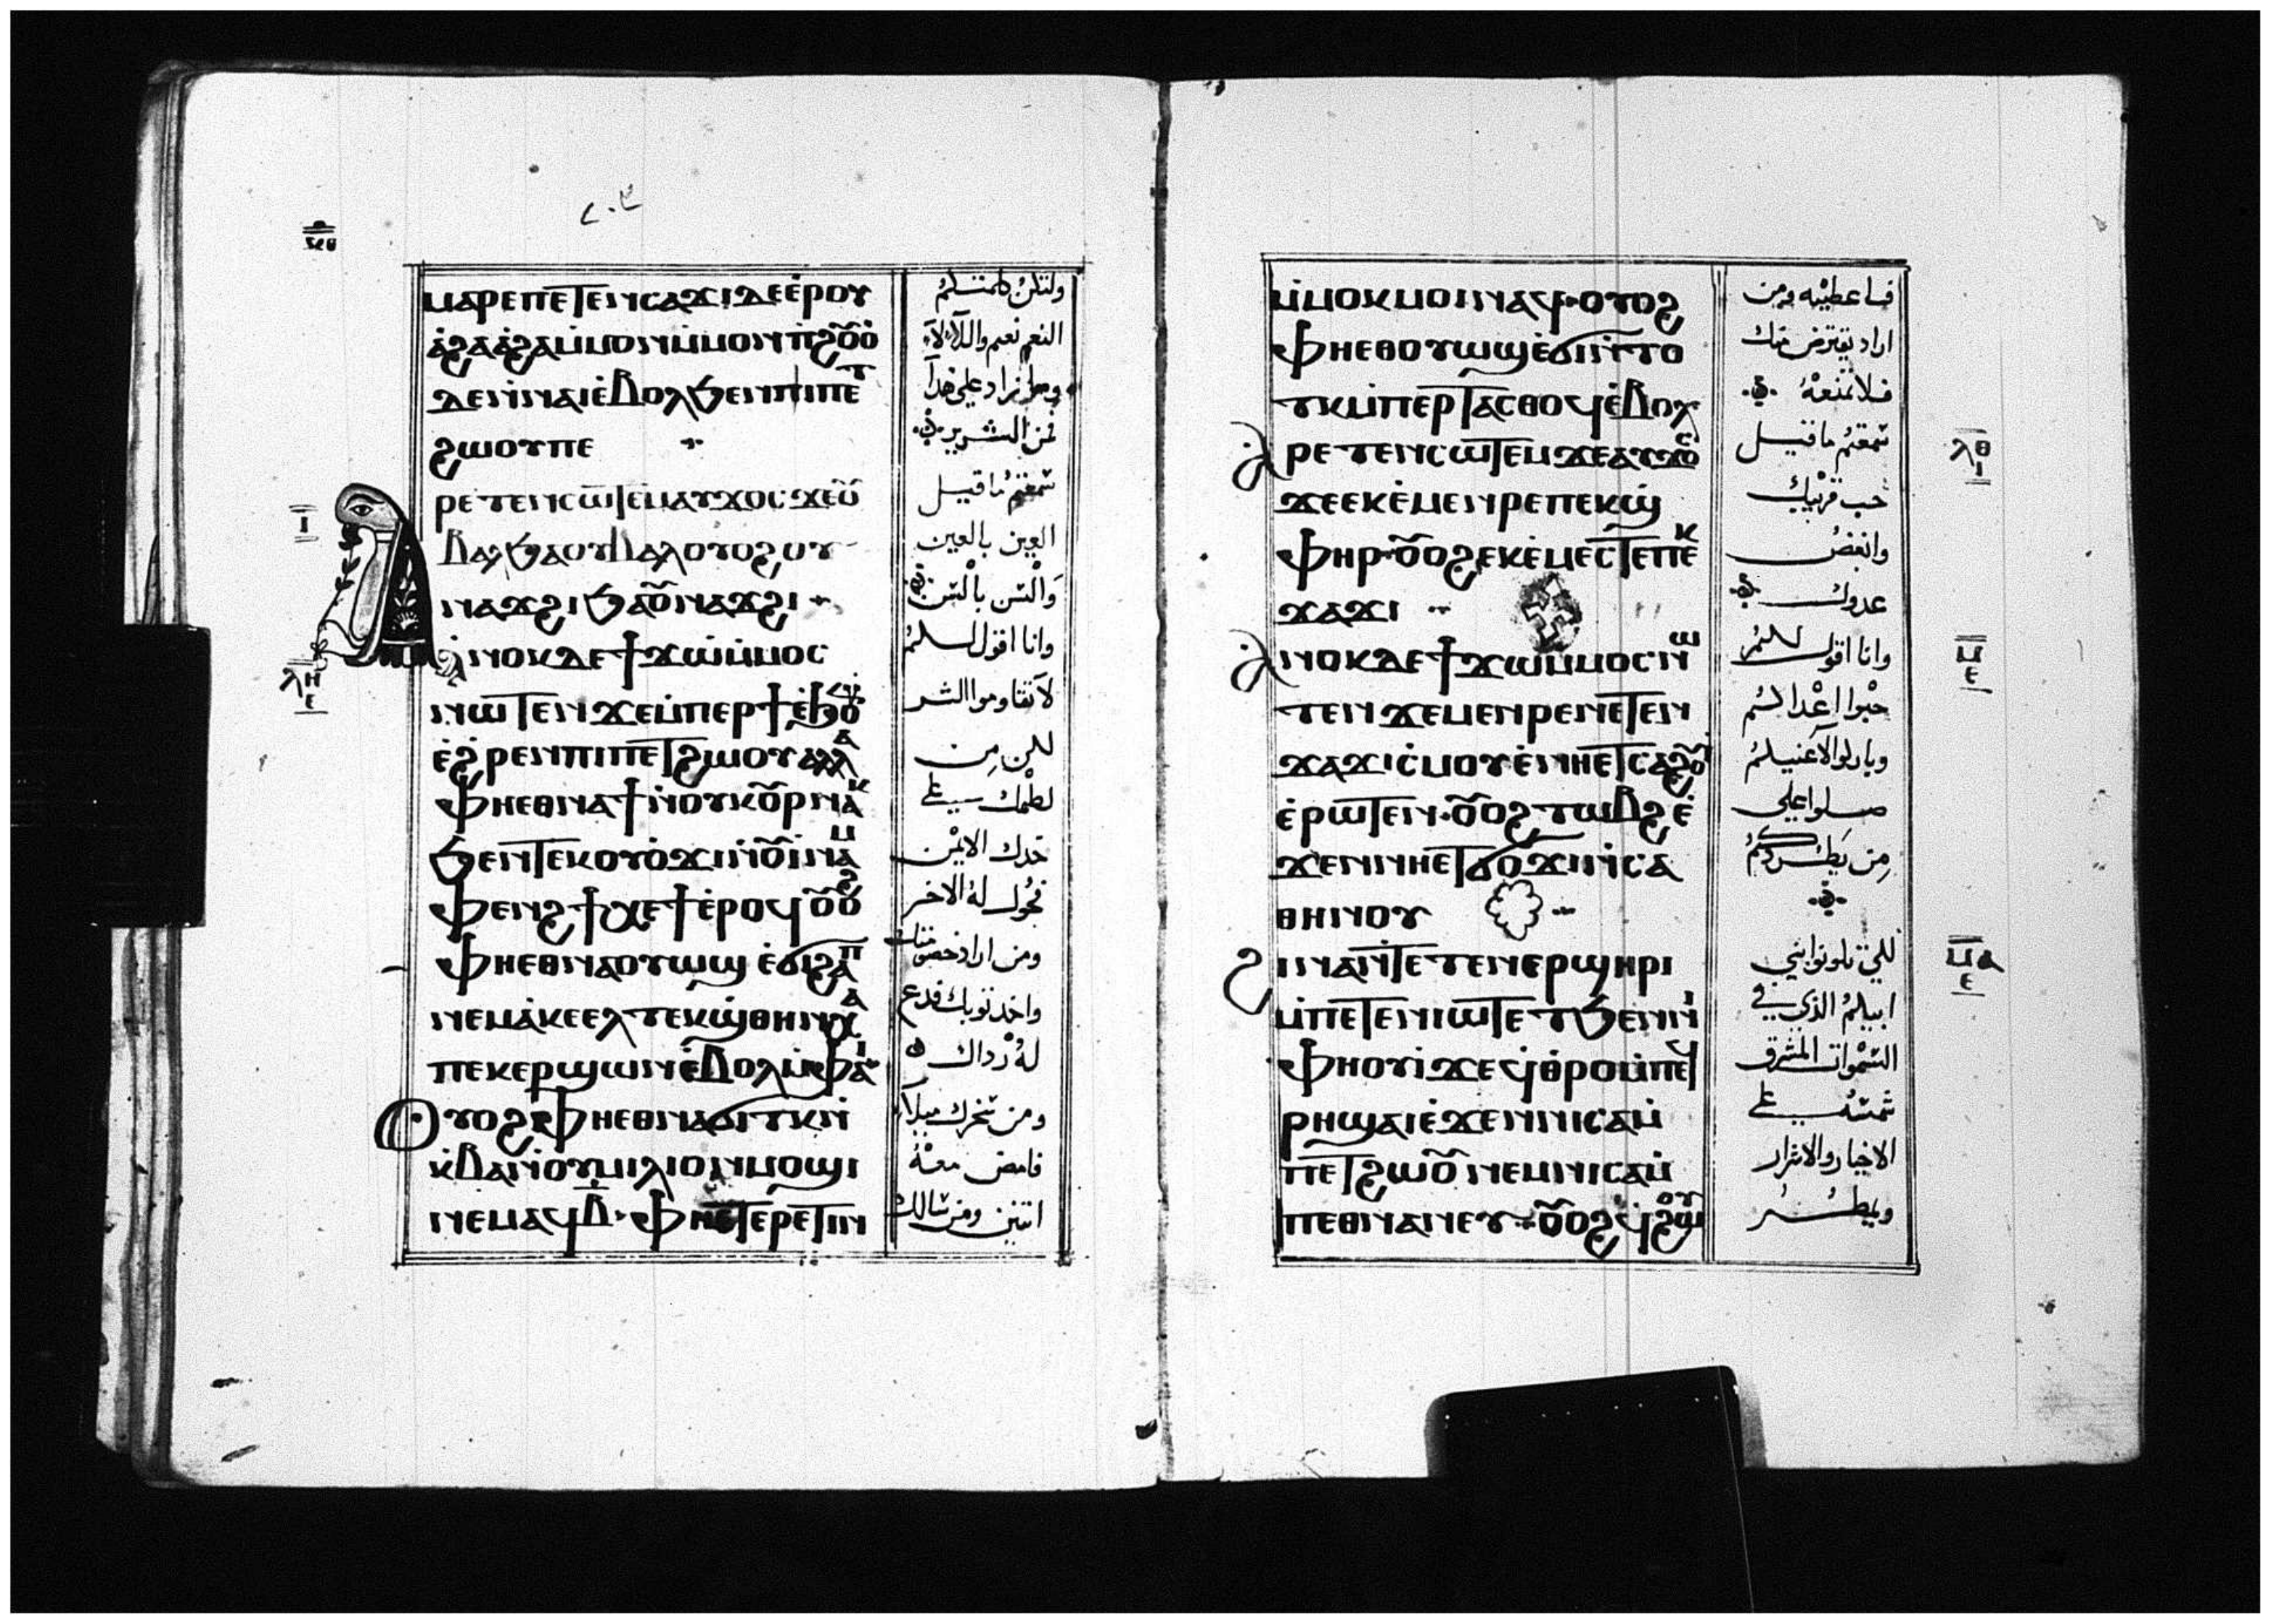 ⲙⲁⲣⲉⲡⲉⲧⲉⲛⲥⲁϫⲓⲇⲉⲉ̇ⲣⲟⲩ
ⲁ̇ϩⲁⲁ̇ϩⲁⲙ̇ⲙⲟⲛⲙ̇ⲙⲟⲛⲡ̇ϩⲟⲩⲟ̇
ⲇⲉⲛ̇ⲛⲁⲓⲉ̇ⲃⲟⲗϧⲉⲛⲡⲓⲡⲉⲧ
ϩⲱⲟⲩⲡⲉ
ⲣⲉⲧⲉⲛⲥⲱⲧⲉⲙⲁⲩϫⲟⲥϫⲉⲟⲩ
ⲃⲁⲗϧⲁⲟⲩⲃⲁⲗⲟⲩⲟϩⲟⲩ
ⲛⲁϫϩⲓϧⲁⲟⲩⲛⲁϫϩⲓ
ⲁ̇ⲛⲟⲕⲇⲉϯϫⲱⲙ̇ⲙⲟⲥ
ⲛⲱⲧⲉⲛϫⲉⲙ̇ⲡⲉⲣϯⲉ̇ϧⲟⲩⲛ
ⲉ̇ϩⲣⲉⲛⲡⲓⲡⲉⲧϩⲱⲟⲩⲁⲗⲗⲁ
ⲫⲏⲉⲑⲛⲁϯⲛ̇ⲟⲩⲕⲟⲩⲣⲛⲁⲕ
ϧⲉⲛⲧⲉⲕⲟⲩⲟ̇ϫⲓⲛ̇ⲟⲩⲓ̇ⲛⲁⲙ
ⲫⲉⲛϩϯⲭⲉϯⲉ̇ⲣⲟϥⲟⲩⲟϩ
ⲫⲏⲉⲑⲛⲁⲟⲩⲱϣⲉ̇ϭⲓϩⲁⲡ
ⲛⲉⲙⲁ̇ⲕⲉⲉⲗⲧⲉⲕϣ̇ⲑⲏⲛⲭⲁ
ⲡⲉⲕⲉⲣϣⲱⲛⲉ̇ⲃⲟⲗⲙ̇ⲫⲁⲓ
ⲟⲩⲟϩⲫⲏⲉⲑⲛⲁϭⲓⲧⲕⲛ̇
ⲕ̇ⲃⲁⲛ̇ⲟⲩⲙⲓⲗⲓⲟⲛⲙⲟϣⲓ
ⲛⲉⲙⲁϥⲃ̅·ⲫⲏⲉⲧⲉⲣⲉⲧⲓⲛ
ولتكن كلمتكم
النعم نعم واللا لا
وما زاد على هذا
فمن الشرير
سمعتم ما قيل
العين بالعين
والسن بالسن
وانا اقول لكم
لا تقاوموا الشر
لكن من
لطمك على
خدك الايمن
فحول له الاخر
ومن اراد خصومتك
واخذ ثوبك فدع
له رداك
ومن سخرك ميلا
فامض معه
اثنين ومن سالك
ⲙ̇ⲙⲟⲕⲙⲟⲓⲛⲁϥ·ⲟⲩⲟϩ
ⲫⲏⲉⲑⲟⲩⲱϣⲉ̇ϭⲓⲛ̇ⲧⲟ
ⲧⲕⲙ̇ⲡⲉⲣⲧⲁⲥⲑⲟϥⲉ̇ⲃⲟⲗ
ⲁⲣⲉⲧⲉⲛⲥⲱⲧⲉⲙϫⲉⲁⲩϫⲟⲥ
ϫⲉⲉⲕⲉ̇ⲙⲉⲛⲣⲉⲡⲉⲕϣ̇
ⲫⲏⲣ·ⲟⲩⲟϩⲉⲕⲉ̇ⲙⲉⲥⲧⲉⲡⲉⲕ
ϫⲁϫⲓ
ⲁⲛⲟⲕⲇⲉϯϫⲱⲙ̇ⲙⲟⲥⲛⲱ
ⲧⲉⲛϫⲉⲙⲉⲛⲣⲉⲛⲉⲧⲉⲛ
ϫⲁϫⲓⲥ̇ⲙⲟⲩⲉ̇ⲛⲏⲉⲧⲥⲁϩⲟⲩⲓ̇
ⲉ̇ⲣⲱⲧⲉⲛ·ⲟⲩⲟϩⲧⲱⲃϩⲉ̇
ϫⲉⲛⲛⲏⲉⲧϭⲟϫⲓⲛ̇ⲥⲁ
ⲑⲏⲛⲟⲩ
ϩⲓⲛⲁⲛ̇ⲧⲉⲧⲉⲛⲉⲣϣⲏⲣⲓ
ⲙ̇ⲡⲉⲧⲉⲛⲓⲱⲧⲉⲧϧⲉⲛⲛⲓ
ⲫⲏⲟⲩⲓ̇ϫⲉϥⲑ̇ⲣⲟⲙ̇ⲡⲉϥ
ⲣⲏϣⲁⲓⲉ̇ϫⲉⲛⲛⲓⲥⲁⲙ̇
ⲡⲉⲧϩⲱⲟⲩⲛⲉⲙⲛⲓⲥⲁⲙ̇
ⲡⲉⲑⲛⲁⲛⲉⲩ·ⲟⲩⲟϩϥϩⲱⲟⲩ
فاعطيه ومن
اراد يقترض منك
فلا تمنعه
سمعتم ما قيل
حب قريبك
وابغض
عدوك
وانا اقول لكم
حبوا اعداكم
وباركوا لاعنيكم
صلوا على
من يطردكم
لكي تكونوا بني
ابيكم الذي في
السموات المشرق
شمسه على
الاخيار والاشرار
ويمطر
ⲗⲏ
ⲉ
ⲓ
ⲗⲑ
ⲓ
ⲙ
ⲉ
ⲙⲁ
ⲉ